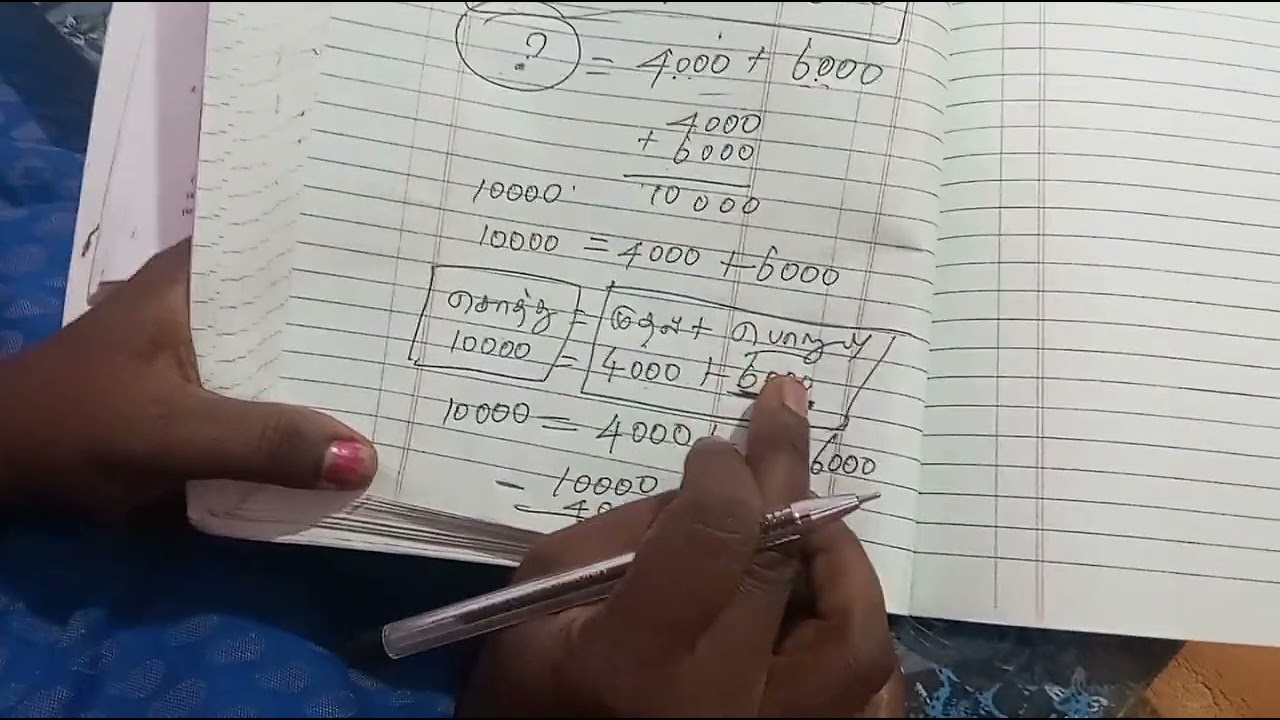 ? = 4000 + 6000
4000
+ 6000
10000 10000
10000 = 4000 + 6000
சொத்து = முதல் + பொறுப்பு
10000 = 4000 + 6000
10000 = 4000 6000
- 10000